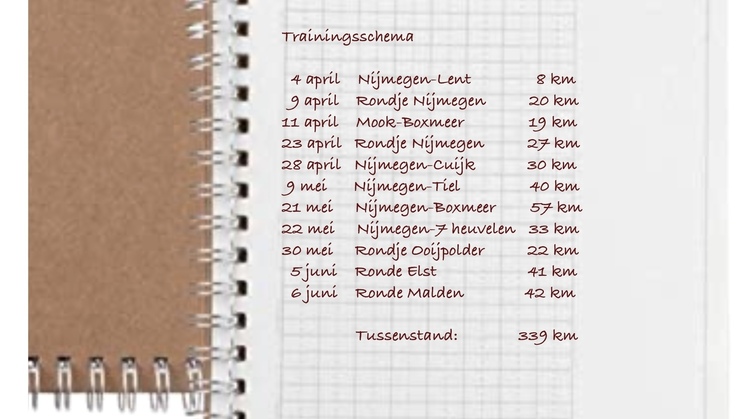 Trainingsschema
4 april Nijmegen-Lent 8 km
9 april Rondje Nijmegen 20 km
11 april Mook-Boxmeer 19 km
23 april Rondje Nijmegen 27 km
28 april Nijmegen-Cuijk 30 km
9 mei Nijmegen-Tiel 40 km
21 mei Nijmegen-Boxmeer 57 km
22 mei Nijmegen-7 heuvelen 33 km
30 mei Rondje Ooijpolder 22 km
5 juni Ronde Elst 41 km
6 juni Ronde Malden 42 km
Tussenstand: 339 km